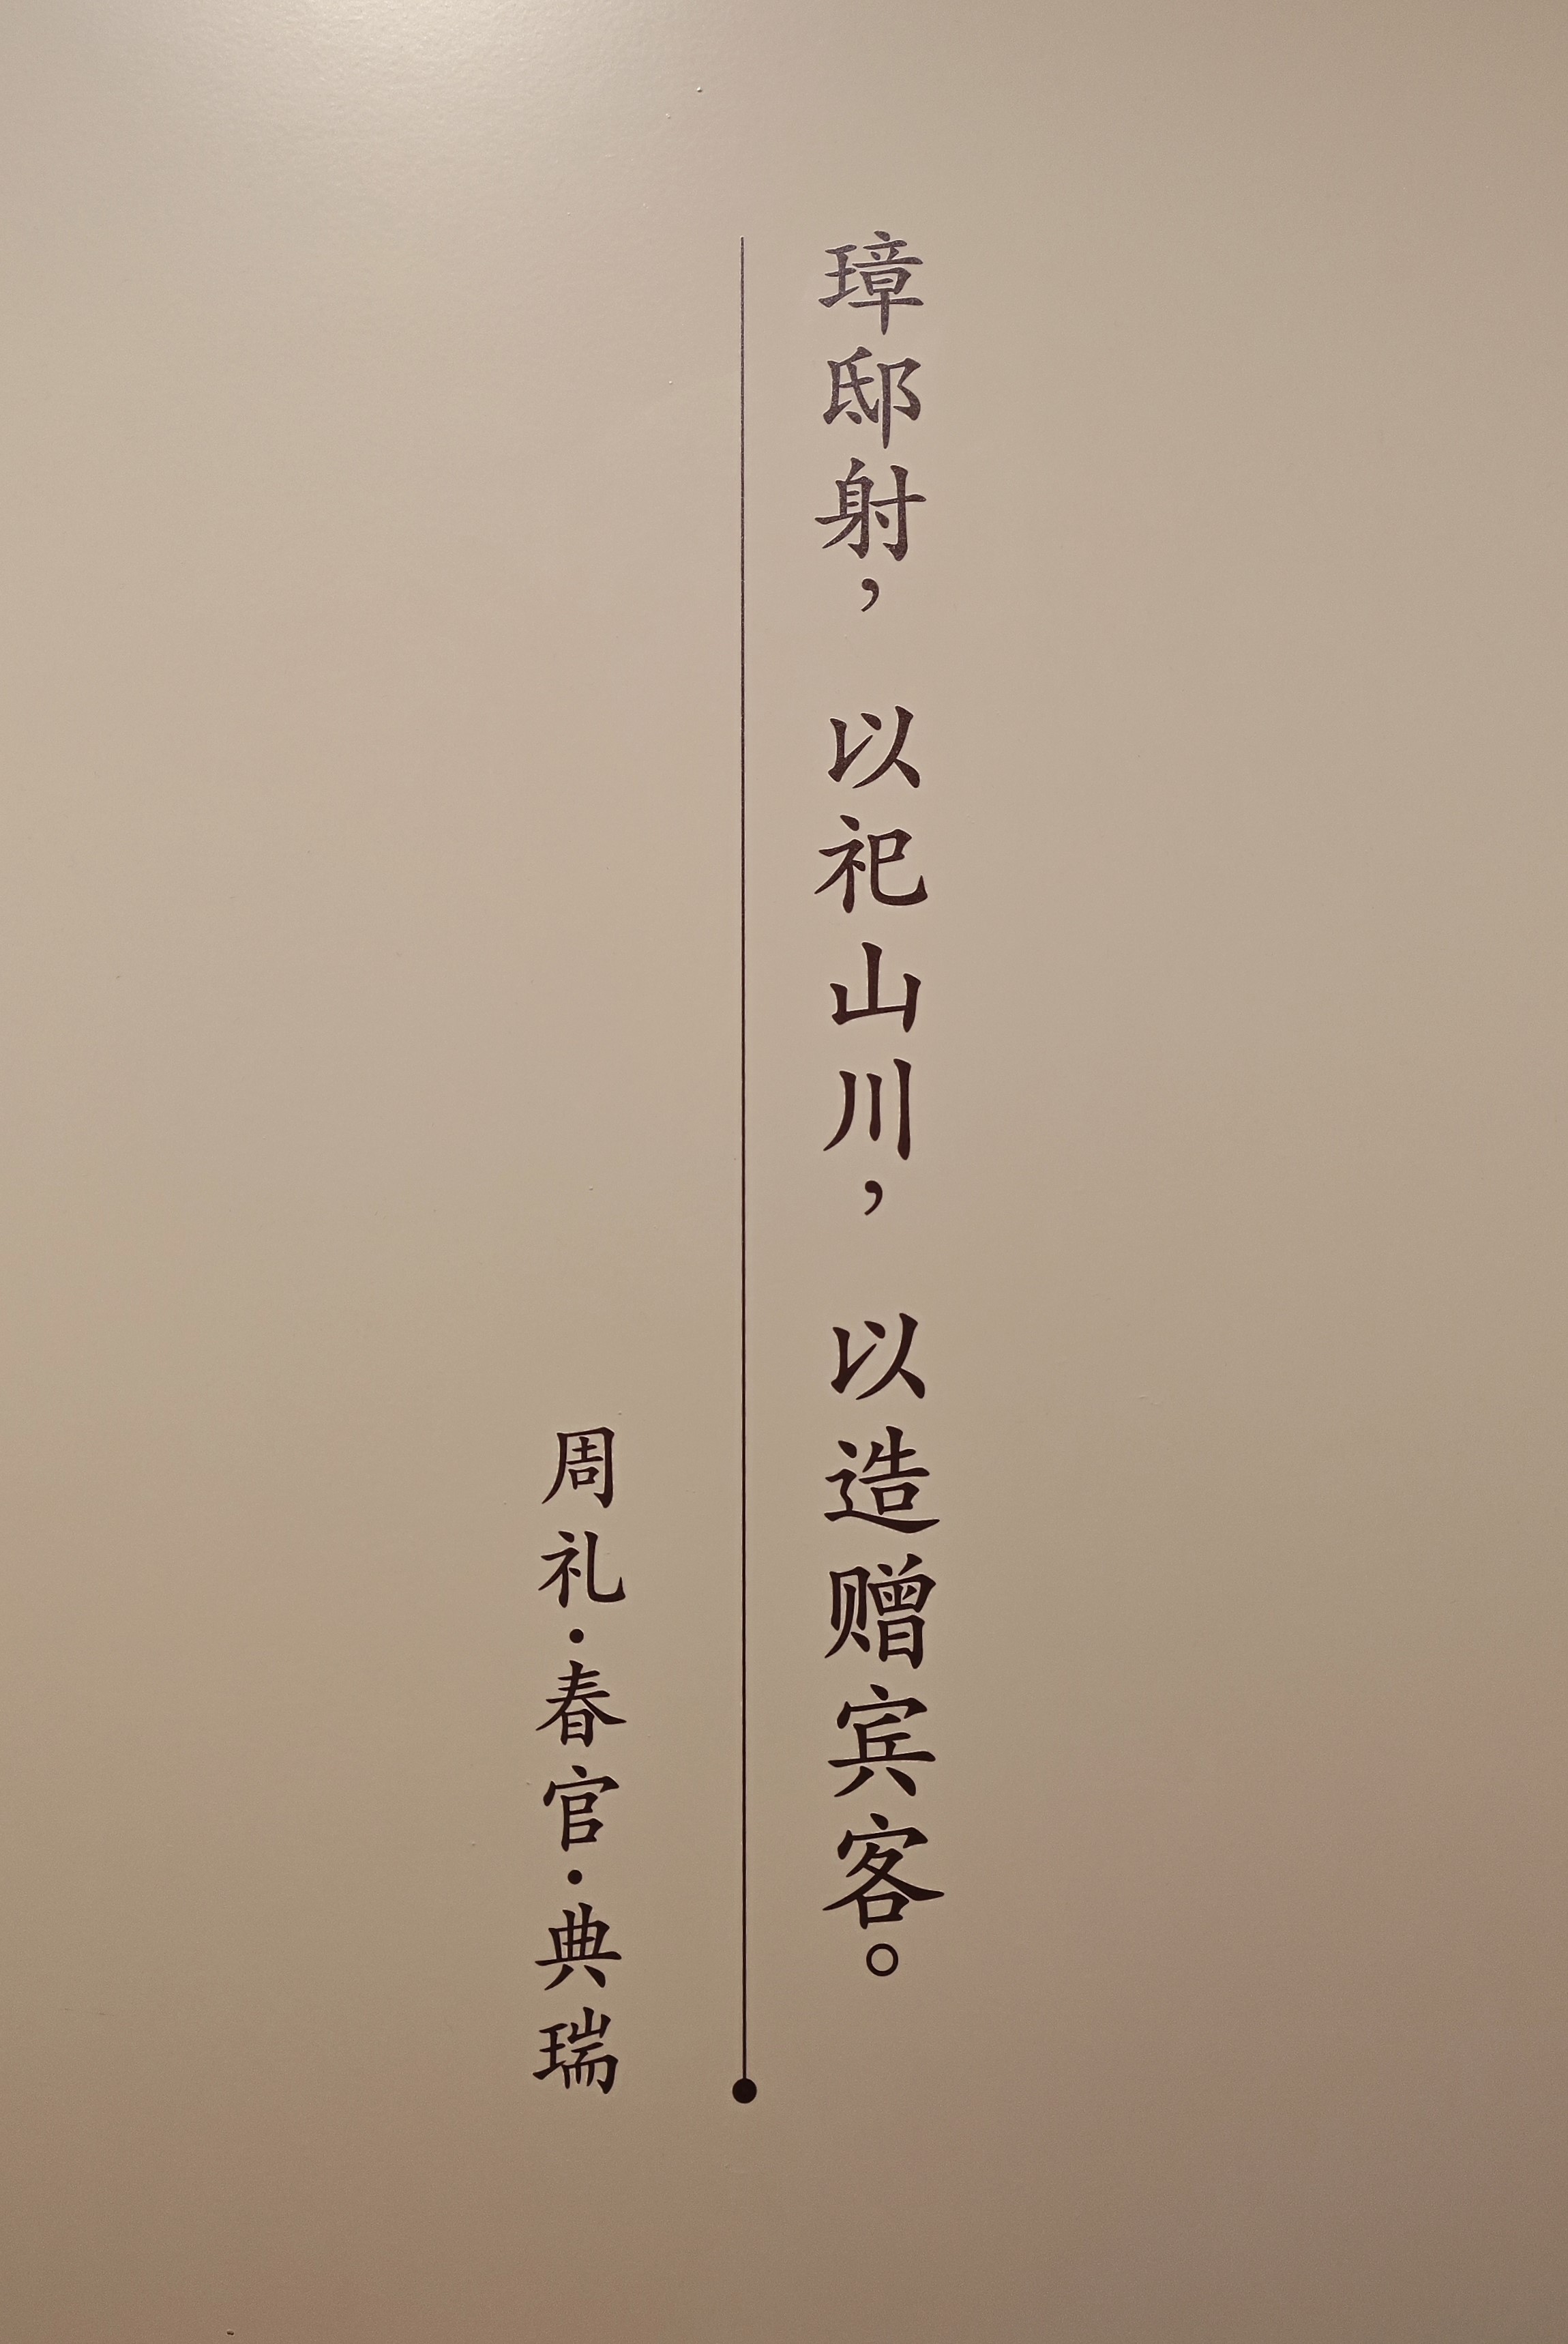 璋邸射，以祀山川，以造赠宾客。
周礼·春官·典瑞